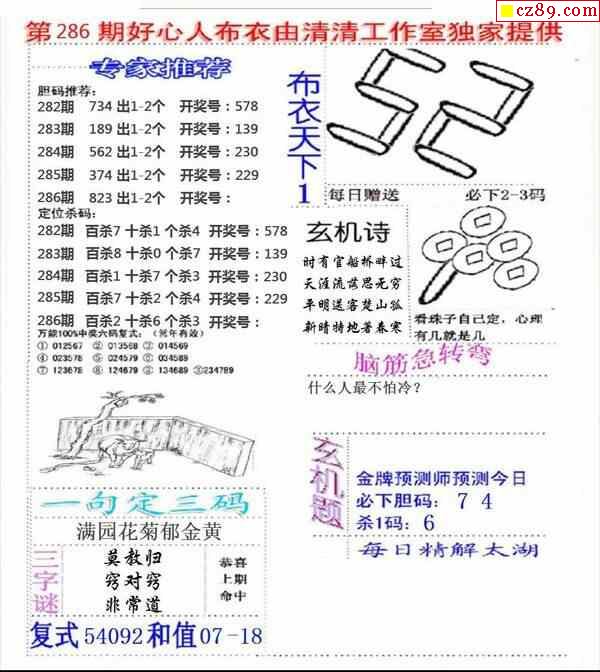 cz89.com
第286期好心人布衣由清清工作室独家提供
专家推荐
胆码推荐:
282期 734 出1-2个 开奖号:578
283期 189 出1-2个 开奖号:139
284期 562 出1-2个 开奖号:230
285期 374 出1-2个 开奖号:229
286期 823 出1-2个 开奖号:
定位杀码:
282期 百杀7 十杀1 个杀4 开奖号:578
283期 百杀8 十杀0 个杀7 开奖号:139
284期 百杀1 十杀7 个杀3 开奖号:230
285期 百杀7 十杀2 个杀4 开奖号:229
286期 百杀2 十杀6 个杀3 开奖号:
万能100%中奖六码复式:(死年有效)
① 012567 ② 013568 ③ 014569
④ 023578 ⑤ 024579 ⑥ 034589
⑦ 123678 ⑧ 124679 ⑨ 134689 ⑩234789
布衣天下1
52
每日赠送 必下2-3码
玄机诗
时有官船桥畔过
天涯流落思无穷
平明送客楚山孤
新晴特地著春寒
看珠子自己定,心理
有几就是几
脑筋急转弯
什么人最不怕冷?
一句定三码
满园花菊郁金黄
三字谜
莫教归
窍对窍
非常道
恭喜
上期
命中
复式54092和值07-18
玄机题
金牌预测师预测今日
必下胆码: 7 4
杀1码: 6
每日精解太湖